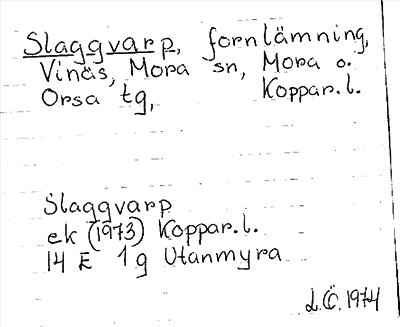 Slaggvarp, fornlämning,
Vinäs, Mora sn, Mora o.
Orsa tg, Koppar.l.
Slaggvarp
ek (1973) Koppar.l.
14 E 1g Utanmyra
L.Ö. 1974